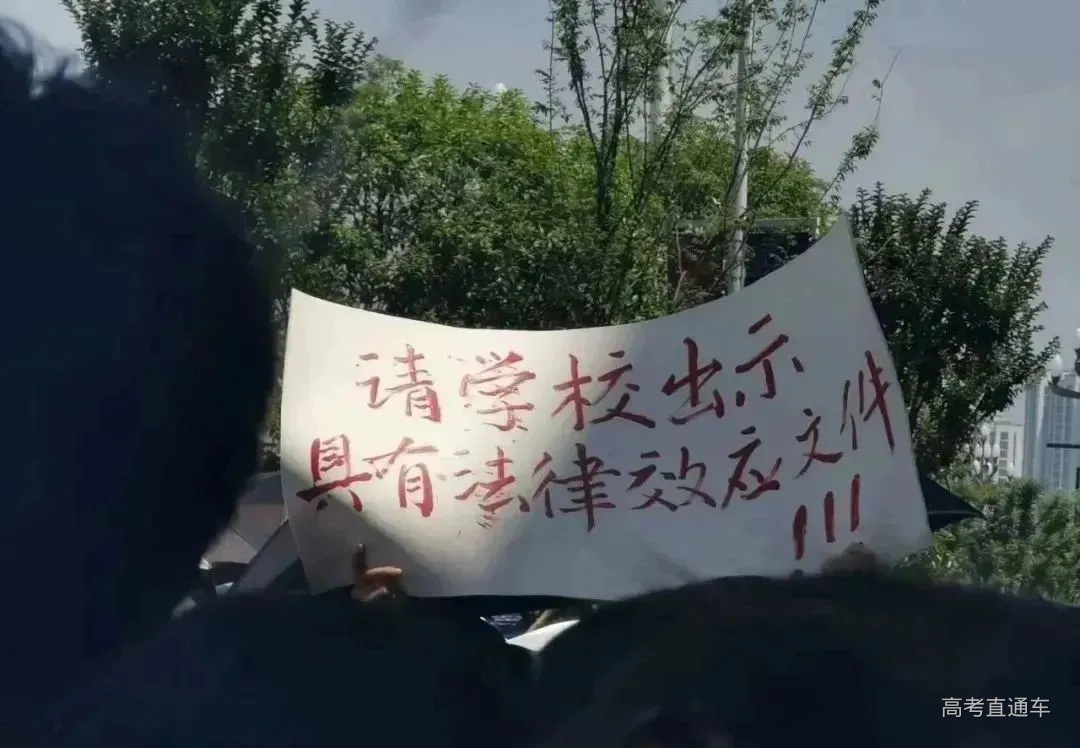 请学校出示
具有法律效应文件
!!!
高考直通车